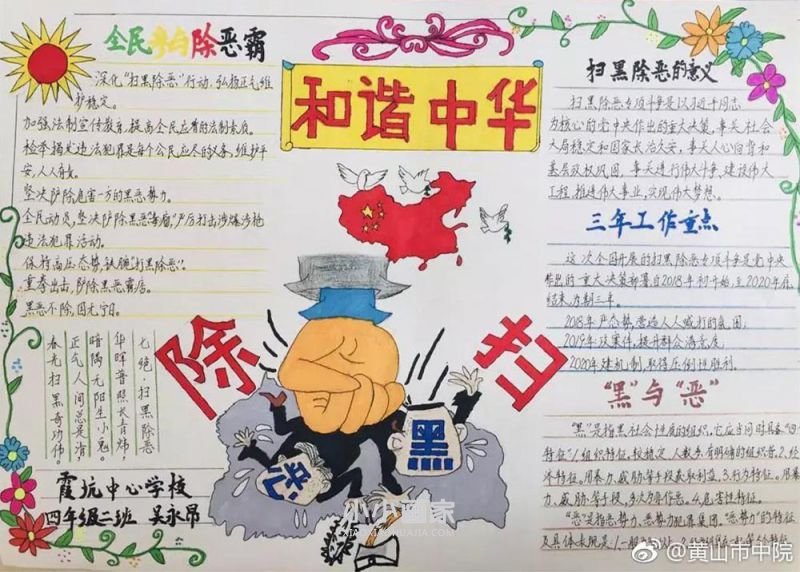 全民参与除恶霸
深化“扫黑除恶”行动，弘扬正气维
护稳定。
加强法制宣传教育，提高全民应有的法制素质。
检举揭发违法犯罪是每个公民应尽的义务，维护平
安，人人有责。
坚决铲除危害一方的黑恶势力。
全民动员，坚决铲除黑恶毒瘤”严厉打击涉爆涉枪
违法犯罪活动。
保持高压态势，铁腕“打黑除恶”。
重拳出击，铲除黑恶霸店。
黑恶不除，国无宁日。
七绝·扫黑除恶
华晖普照长青炜，
暗隅无阳生小鬼。
正气人间总是清，
春光扫黑奇功伟。
霞坑中心学校
四年级二班 吴永昂
和谐中华
除
扫
恶
黑
小小画家
XIAOXIAOHUAJIA.COM
扫黑除恶的意义
扫黑除恶专项斗争是以习近平同志
为核心的党中央作出的重大决策，事关社会
大局稳定和国家长治久安，事关人心向背和
基层政权巩固，事关进行伟大斗争、建设伟大
工程、推进伟大事业、实现伟大梦想。
三年工作重点
这次全国开展的扫黑除恶专项斗争是党中央
作出的重大决策部署自2018年初开始，至2020年底
结束，为期三年。
2018年严态势，营造人人喊打的氛围；
2019年攻案件，提升群众满意度；
2020年建机制，取得压倒性胜利。
“黑”与“恶”
“黑”是指黑社会性质的组织，它应当同时具备“四个
特征”：1.组织特征。较稳定、人数多、有明确的组织者；2.经
济特征。用暴力、威胁等手段获取利益；3.行为特征。用暴
力、威胁等手段，多次为非作恶。4.危害性特征。
“恶”是指恶势力、恶势力犯罪集团。“恶势力”的特征
及具体表现是：1.一般为3人以上
@黄山市中院